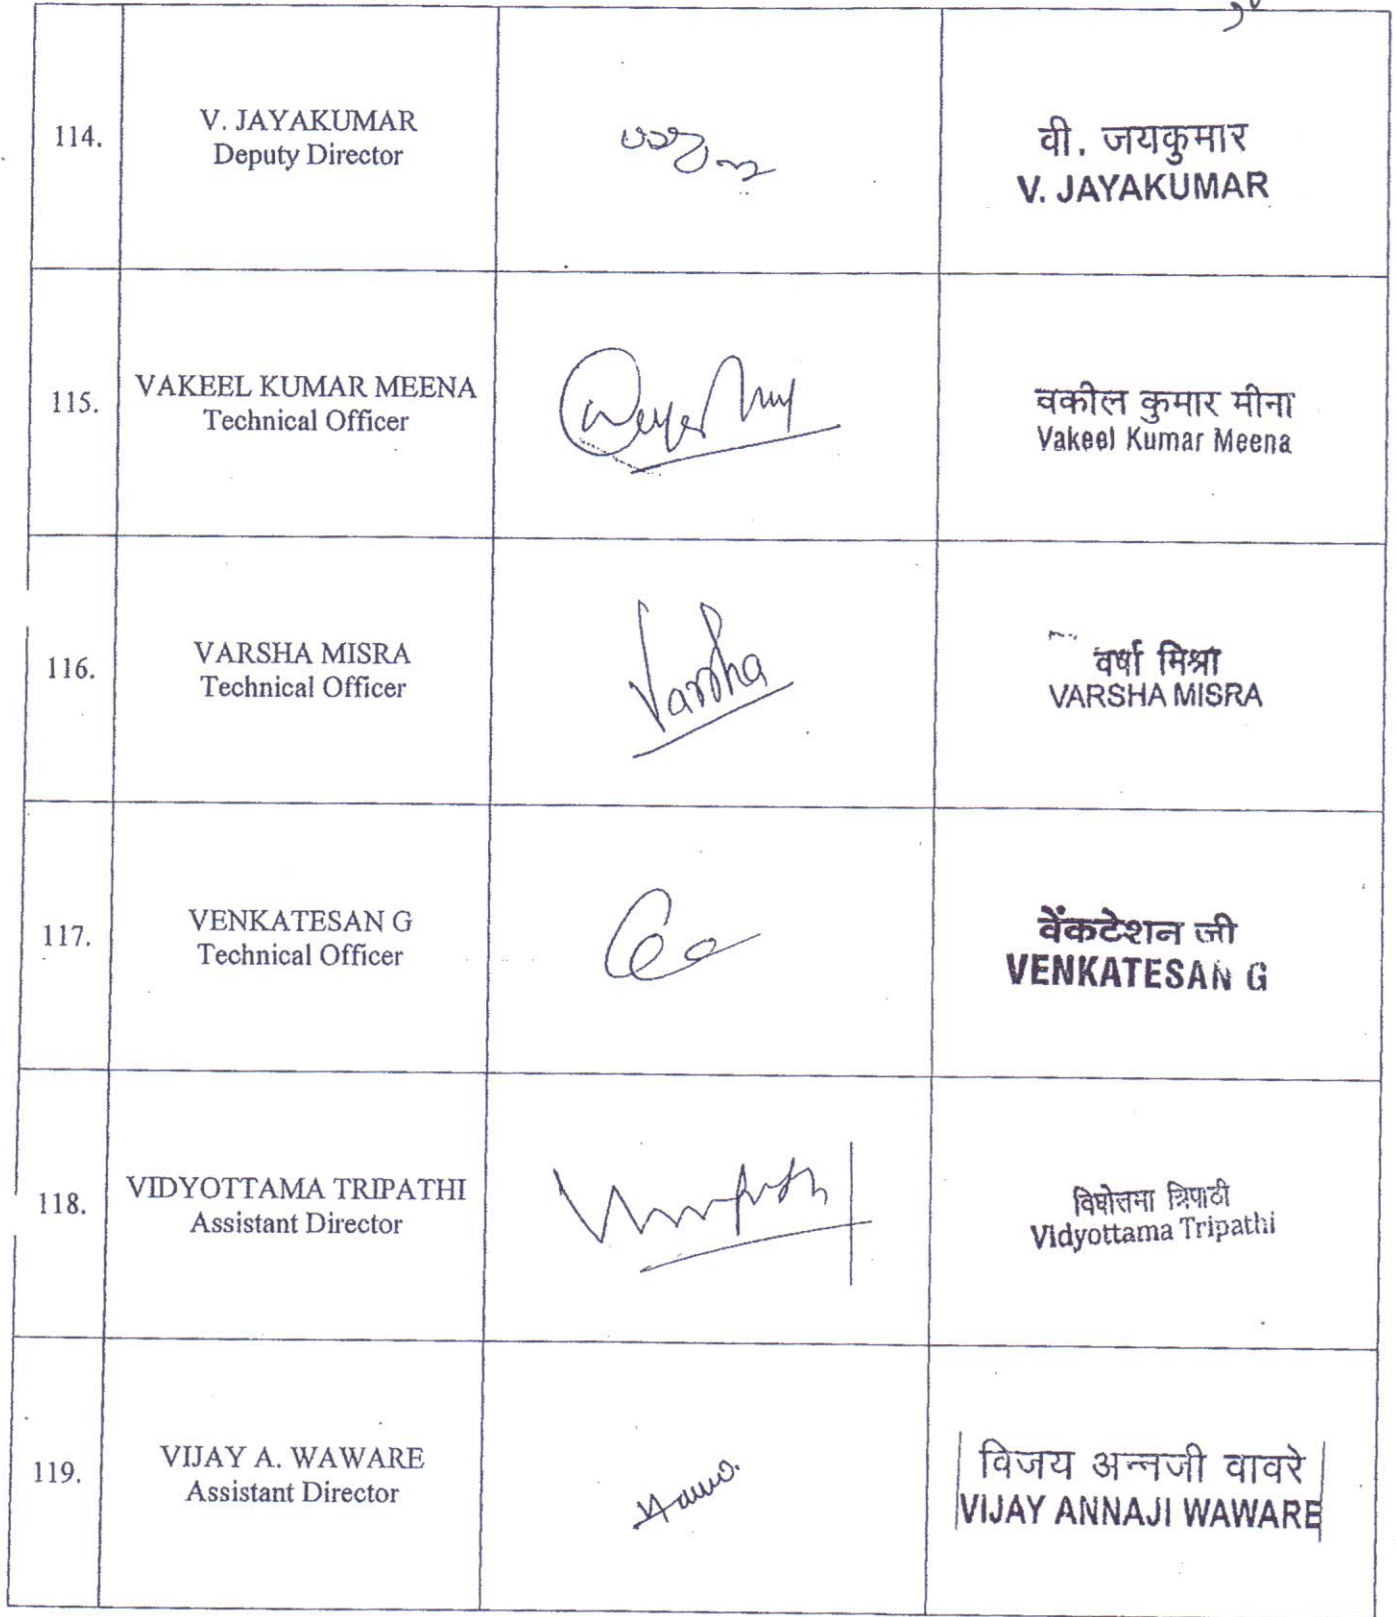 114.
V. JAYAKUMAR
Deputy Director
वी. जयकुमार
V. JAYAKUMAR
115.
VAKEEL KUMAR MEENA
Technical Officer
वकील कुमार मीना
Vakeel Kumar Meena
116.
VARSHA MISRA
Technical Officer
Varsha
वर्षा मिश्रा
VARSHA MISRA
117.
VENKATESAN G
Technical Officer
वेंकटेशन जी
VENKATESAN G
118.
VIDYOTTAMA TRIPATHI
Assistant Director
विद्योत्तमा त्रिपाठी
Vidyottama Tripathi
119.
VIJAY A. WAWARE
Assistant Director
विजय अन्नजी वावरे
VIJAY ANNAJI WAWARE